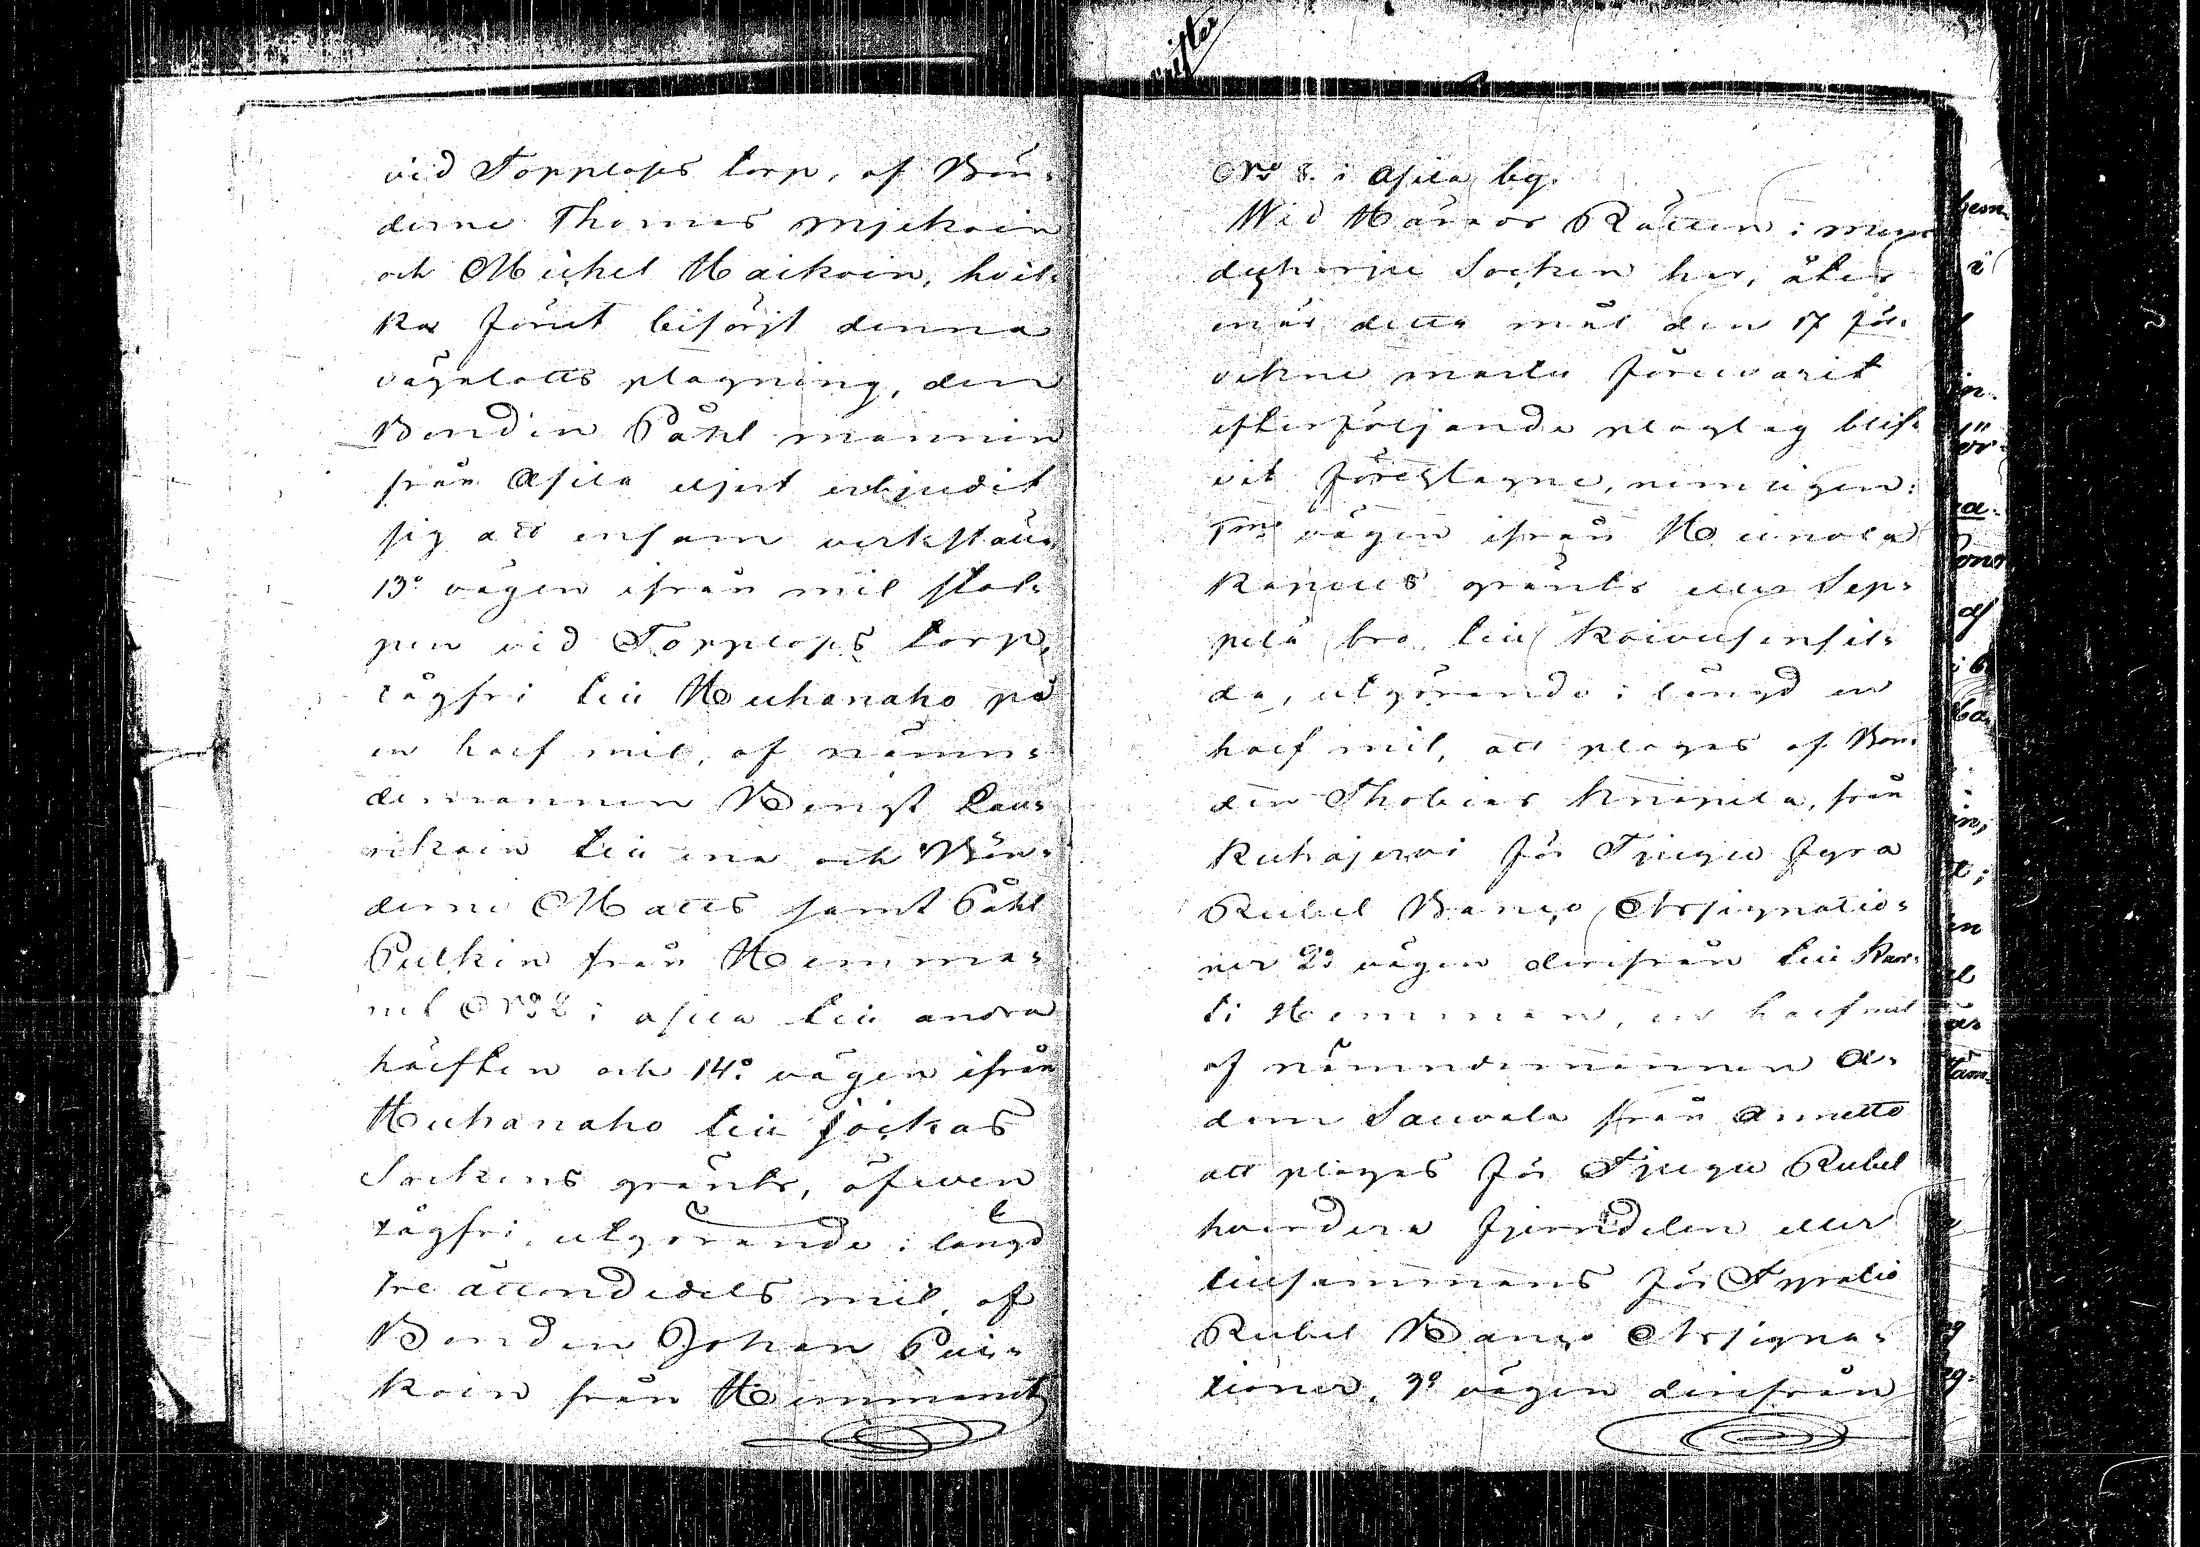 vid Topplaps torp, af Bön-
derne Thomas Mjekoin
och Michel Haikoin, hvil-
ka förut besörjt denna
vägalotts plogning, den
Bonden Påhl Manninen
från Asila eljest erbjudit
sig att ensam verkställa
13º vägen ifrån mil stol-
pen vid Topplaps torp,
rågfri till Huhanaho på
en half mil, af nämn-
demannen Bengt Lau-
rikain till ena och Bön-
derne Matts samt Påhl
Pulkin från Hemma-
net Nº 2 i Asila till andra
hälften och 14º vägen ifrån
Huhanaho till Jockas
Sockens gränts, äfwen
rågfri, utgörande i längd
tre åttondedels mil, af
Bonden Johan Pui-
koin från Hemmanet
Nº 8. i Asila by.
Wid Härads Rätten i
socken har, äfter
när detta mål den 17 för-
vekne martii förewarit
efterföljande ploglag blif-
vit föreslagne, nemligen:
1mo vägen ifrån Heinola
Kapells gränts eller Sep-
pelä bro till Koivusensil-
da, utgörande i längd en
half mil, att plogas af Bon-
den Thobias Knapila, från
Kuhajervi för Tjugu fyra
Rubel Banco Assignatio-
ner 2º vägen derifrån till Kar-
ti Hemman, en half mil
af nämndemannen A-
dam Sauvala från Annetto
att plogas för Tjugu Rubel
hvardera fjerndelen eller
tillsammans för Fyratio
Rubel Banco Assigna-
tioner, 3º vägen derifrån